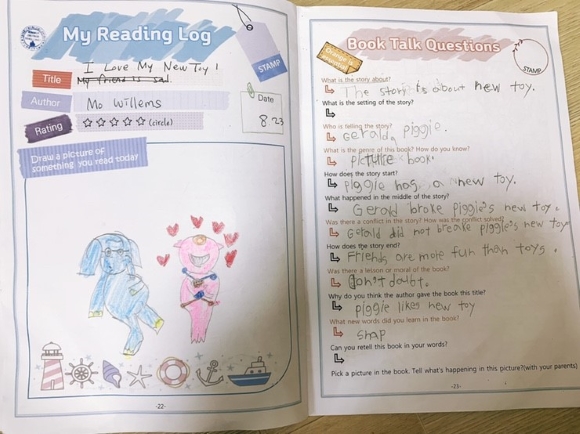 My Reading Log
STAMP
Title
I Love My New Toy!
My friend is sad
Author
Mo Willems
Date
8 23
Rating
(circle)
Draw a picture of
something you read today
-22-
Book Talk Questions
STAMP
What is the story about?
The story is about new toy.
What is the setting of the story?
Who is telling the story?
Gerald, piggie.
What is the genre of this book? How do you know?
picture book.
How does the story start?
piggie has a new toy.
What happened in the middle of the story?
Gerald broke piggie's new toy.
Was there a conflict in the story? How was the conflict solved?
Gerald did not break piggie's new toy
How does the story end?
Friends are more fun than toys.
Was there a lesson or moral of the book?
Don't doubt.
Why do you think the author gave the book this title?
piggie likes new toy
What new words did you learn in the book?
snap
Can you retell this book in your words?
Pick a picture in the book. Tell what's happening in this picture?(with your parents)
-23-